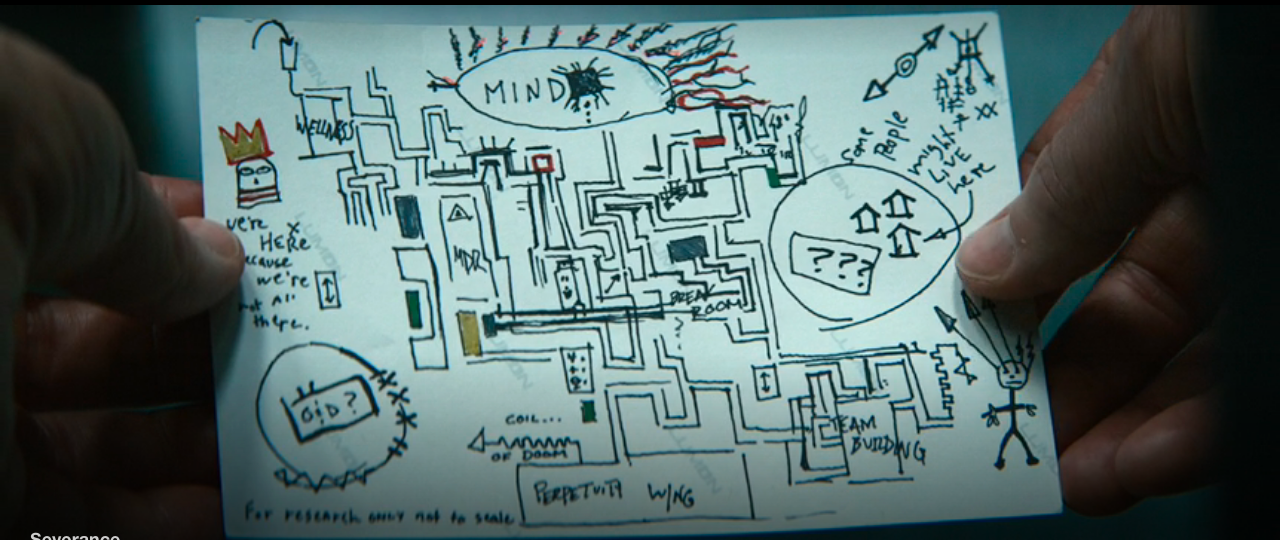 MIND
WELLNESS
Some
PEOPLE
might
LIVE
here
we're
HERE
because
we're
not all
there.
MDR
???
BREAK
ROOM
?
O&D?
COIL...
OF DOOM
TEAM
BUILDING
PERPETUITY WING
For research only not to scale
Severance